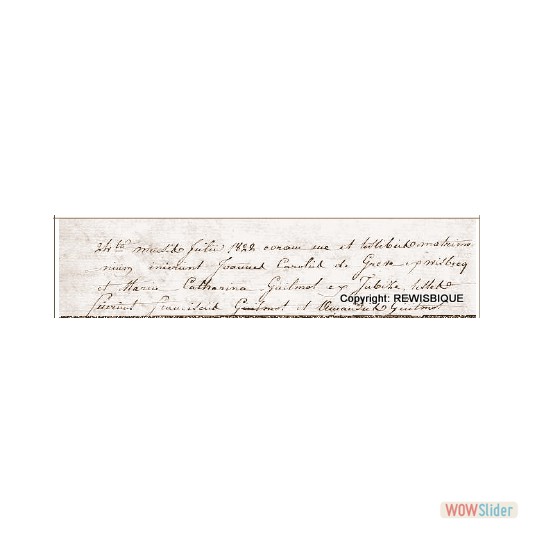 24te mensis Julii 1822 coram me et testibus matrimo
nium inierunt Joannes Carolus de ex
et Maria Catharina Guilmot ex Jubize. testes
fuerunt Franciscus Guilmot et Amandus Guilmot
Copyright: REWISBIQUE
WOWSlider